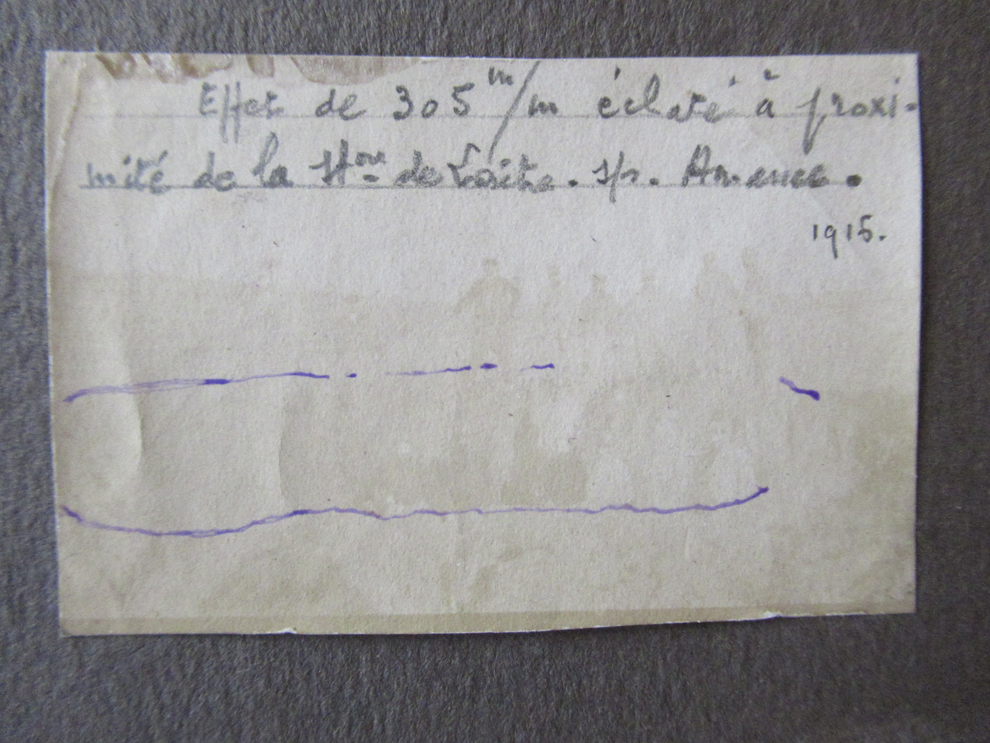 Effet de 305 m/m éclaté à proxi-
mité de la Hte de s/s. Amance.
1915.